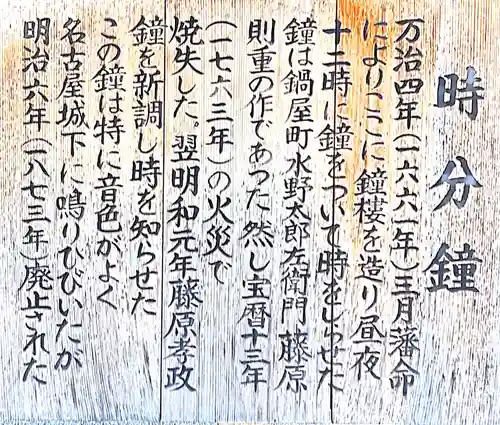 時分鐘
万治四年（一六六一年）三月藩命
によりここに鐘樓を造り昼夜
十二時に鐘をついて時をしらせた
鐘は鍋屋町水野太郎左衛門藤原
則重の作であった然し宝暦十三年
（一七六三年）の火災で
焼失した。翌明和元年藤原孝政
鐘を新調し時を知らせた
この鐘は特に音色がよく
名古屋城下に鳴りひびいたが
明治六年（一八七三年）廃止された